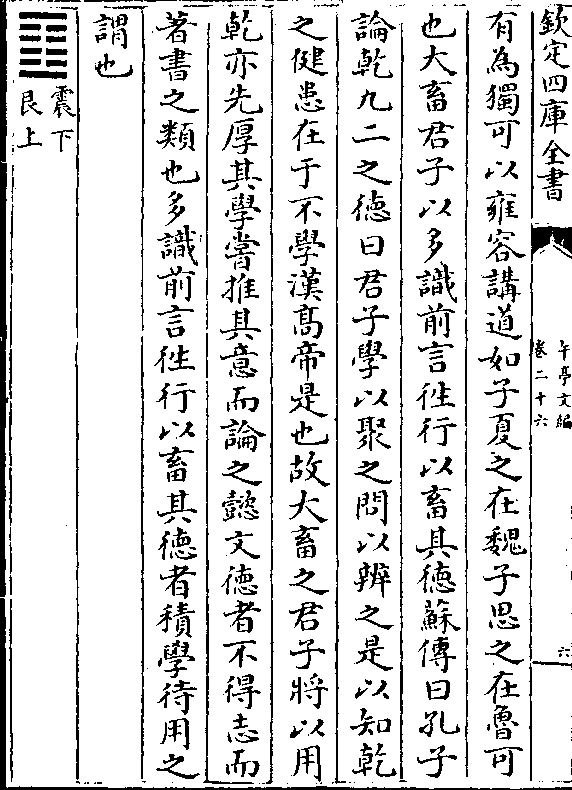 欽定四庫全書
午亭文編
卷二十六
六
有為獨可以雍容講道如子夏之在魏子思之在魯可
也大畜君子以多識前言徃行以畜其徳蘇傳曰孔子
論乾九二之徳曰君子學以聚之問以辨之是以知乾
之健患在于不學漢髙帝是也故大畜之君子將以用
乾亦先厚其學嘗推其意而論之懿文徳者不得志而
著書之類也多識前言徃行以畜其徳者積學待用之
謂也
震下
艮上